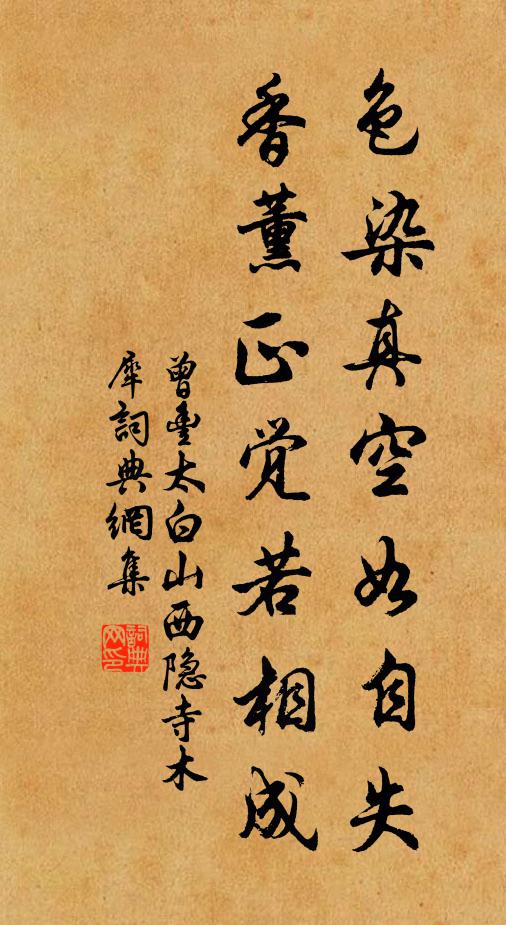 色染真空如自失
香薰正觉若相成
曾丰太白山西隐寺木
犀词典網集
詞典網印